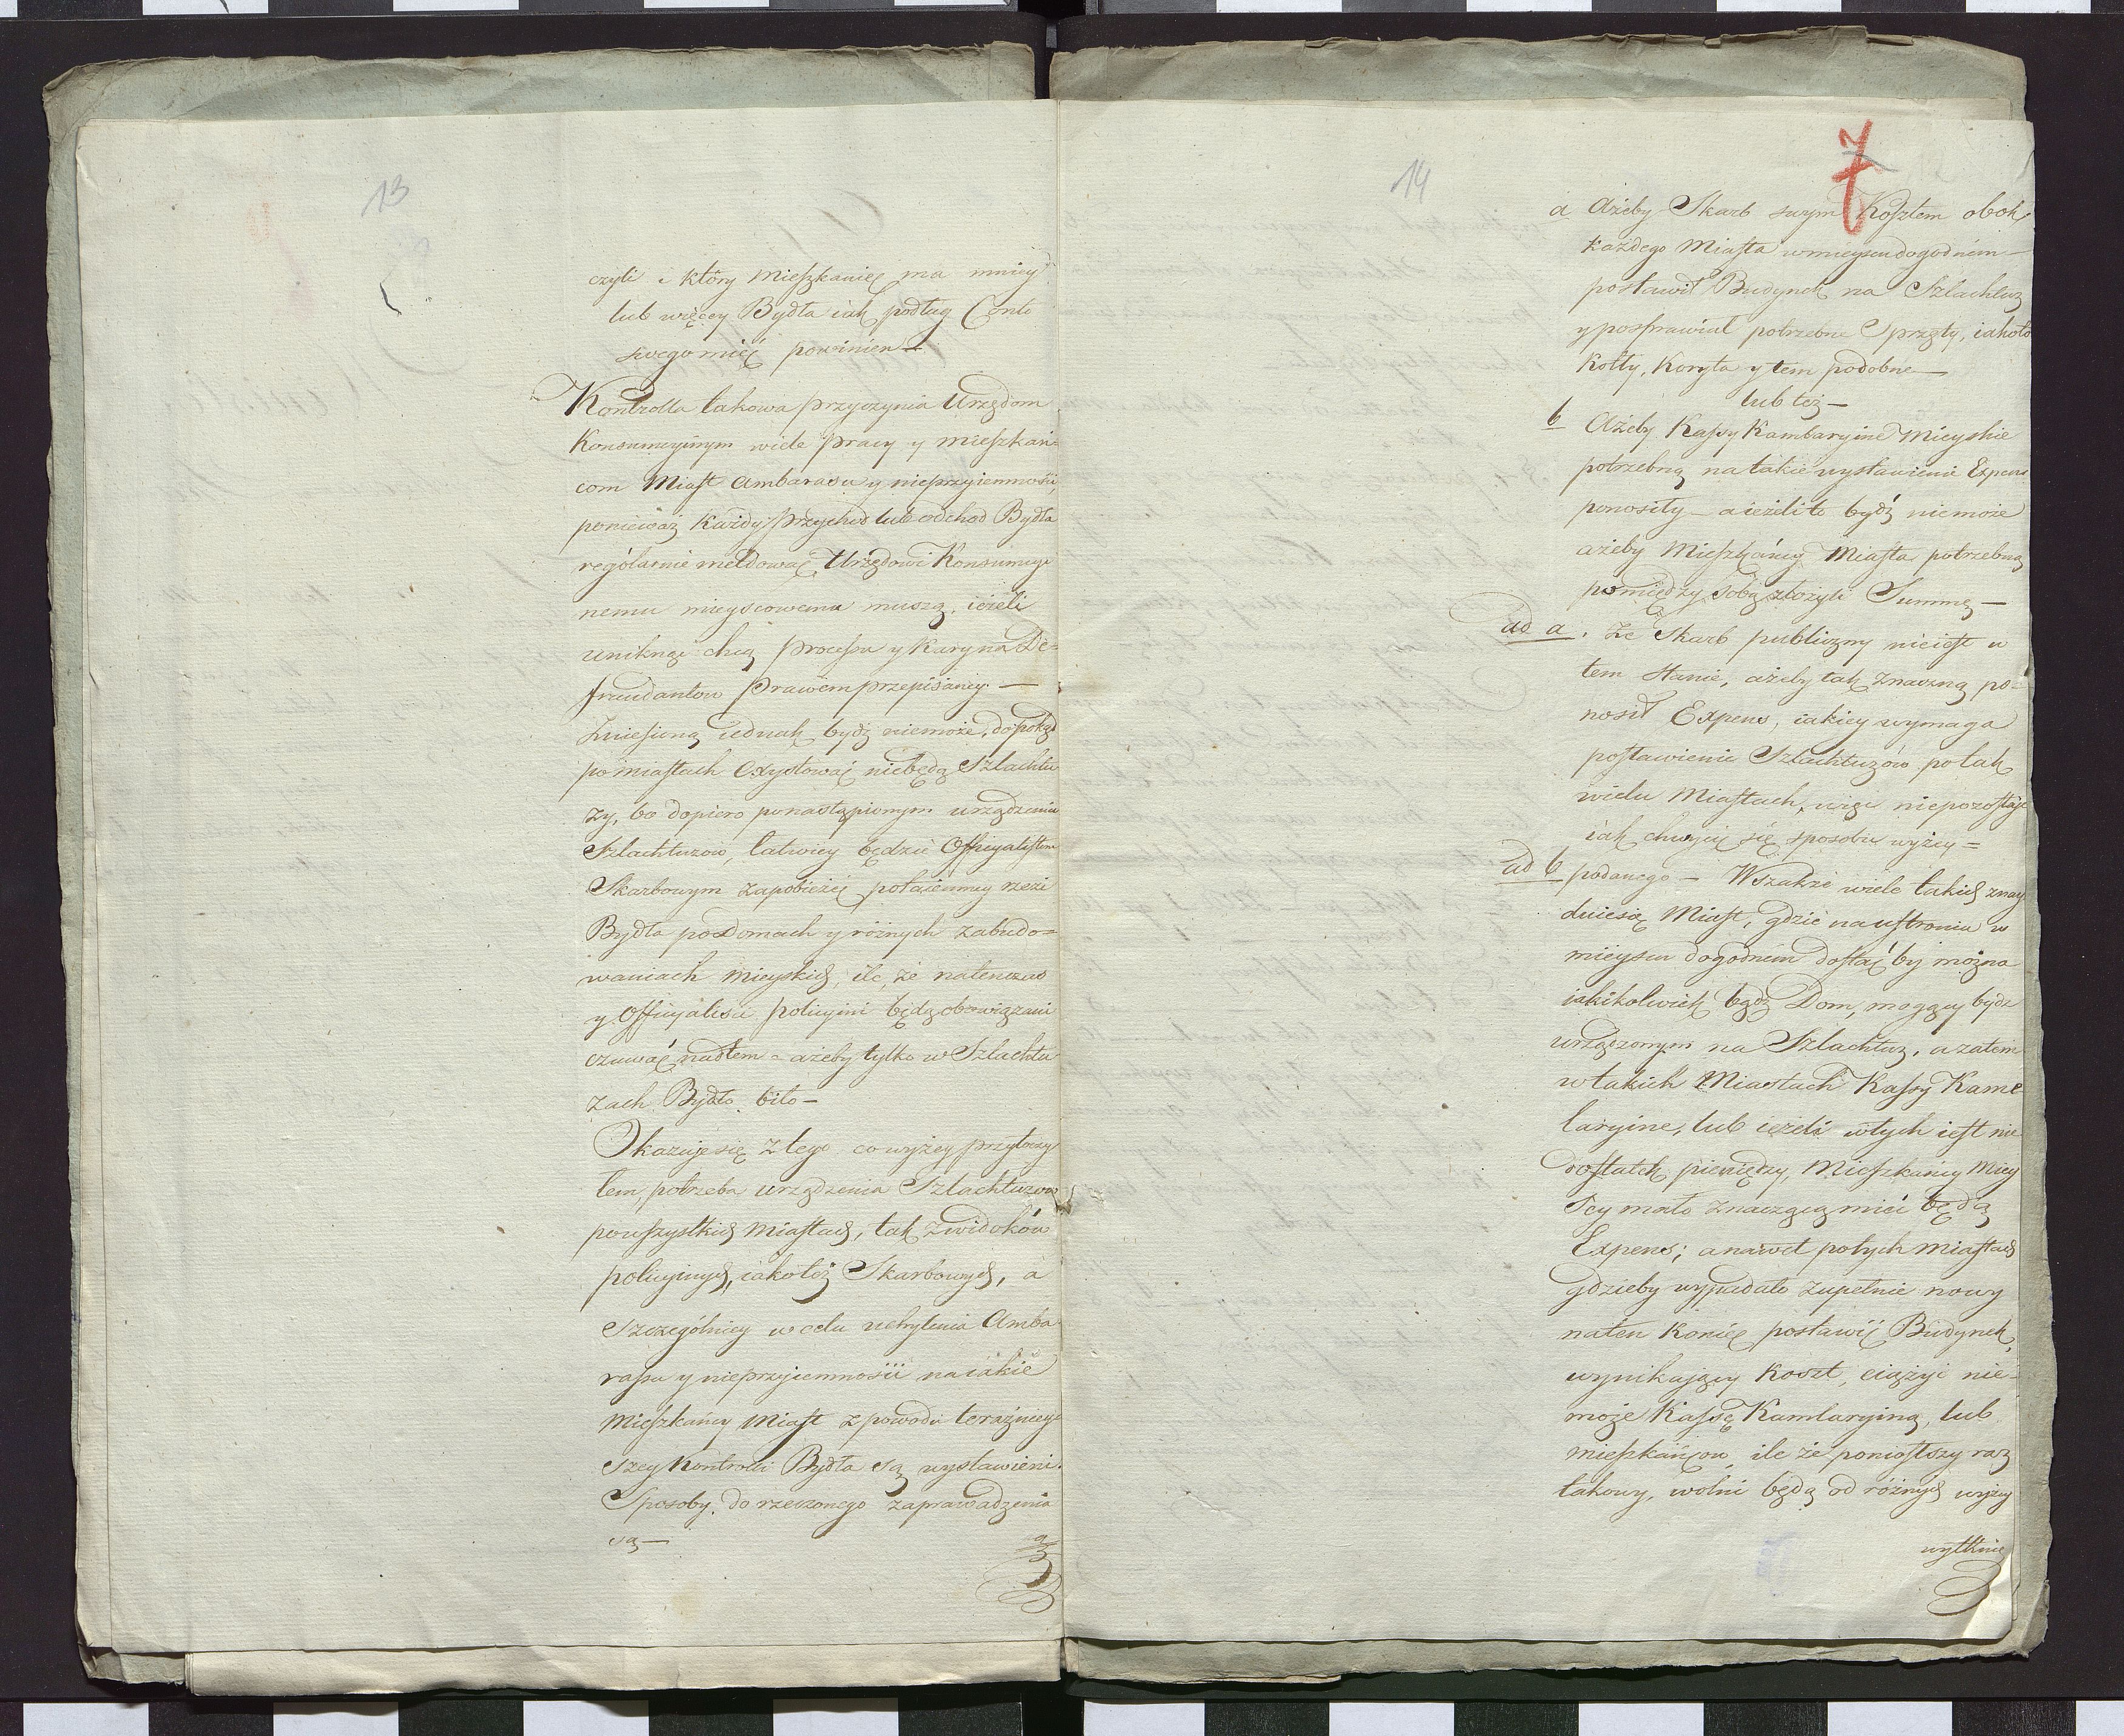 13
czyli i który Mieszkaniec ma mniey
lub więcey Bydła iak podług Conto
swego mieć powinien —
Kontrolla takowa przyczynia Urzędom
Konsumcyinym wiele pracy y mieszkań-
com Miast Ambarasu y nieprzyiemności,
ponieważ każdy przychod lub odchod Bydła
régólarnie meldować Urzędowi Konsumcyi
nemu mieyscowemu muszą, ieżeli
uniknąć chcą processu y Kary na De-
fraudantow Prawem przepisaney. —
Zniesioną iednak bydź niemoże, dopokąd
po miastach Exystować niebędą Szlachtu
zy, bo dopiero ponastąpionym urządzeniu
Szlachtuzow, łatwiey będzie Officyalistom
Skarbowym zapobieżeć potaiemney rzezi
Bydła po Domach y różnych zabudo=
waniach mieyskich, ile, że natenczas
y Officyalisci policyini będą obowiązani
czuwać nadtem ażeby tylko w Szlachtu
zach Bydło bito —
Okazuje się z tego co wyżey przytoczy
łem, potrzeba urządzenia Szlachtuzow
powszystkich Miastach, tak z widoków
policyinych, iakoteż Skarbowych, a
szczególniey w celu uchylenia Amba
rassu y nieprzyiemności na iakie
Mieszkańcy Miast z powodu teraźniey
szey Kontrolli Bydła są wystawieni.
Sposoby do rzeczonego zaprowadzenia
są —
14
7
a Ażeby Skarb swym Kosztem obok
każdego Miasta w mieyscu dogodném —
postawił Budynek na Szlachtuz
y posprawiał potrzebne Sprzęty, iakoto
Kotły, Koryta y tem podobne —
lub też —
b Ażeby Kassy Kamlaryine Mieyskie
potrzebną na takie wystawienie Expens
ponosiły — a ieżeli to bydź niemoże
ażeby Mieszkańcy Miasta potrzebną
pomiędzy sobą złożyli Summę —
ad a. Że Skarb publiczny nieiest w
tem stanie, ażeby tak znaczną po=
nosił Expens, iakiey wymaga
postawienie Szlachtuzów po tak
wielu Miastach, więc niepozostaje
iak chwycić się sposobu wyżey =
ad b podanego — Wszakże wiele takich znay
duiesię Miast, gdzie na ustroniu w
mieyscu dogodném dostać by można
iakikolwiek bądź Dom, mogący bydz
urządzonym na Szlachtuz, a zatem
w takich Miastach Kassy Kame
laryine, lub ieżeli w tych iest nie
dostatek pieniędzy, Mieszkańcy Miey
scy mało znaczącą mieć będą
Expens; a nawet po tych miastach
gdzieby wypadało zupełnie nowy
na ten koniec postawić Budynek,
wynikający koszt, ciążyć nie-
może Kassę Kamlaryiną, lub
mieszkańcow, ile że poniosłszy raz
takowy, wolni będą od różnych wyżey
wytknię